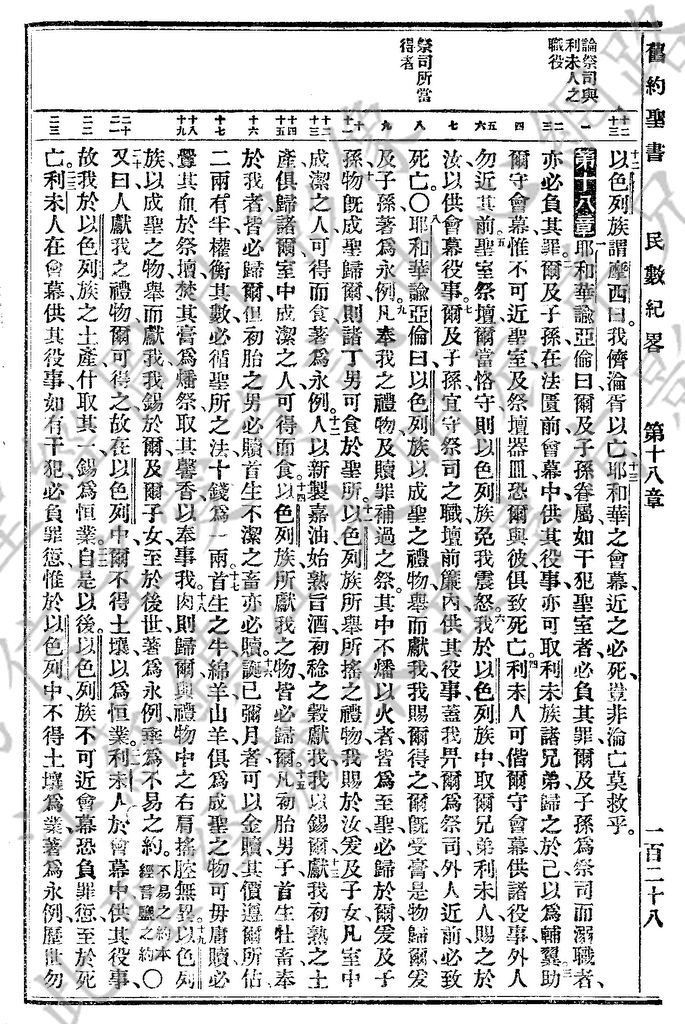 舊約聖書 民數紀畧 第十八章 一百二十八
論祭司與
利未人之
職役
祭司所當
得者
以色列族謂摩西曰我儕淪胥以亡耶和華之會幕近之必死豈非淪亡莫救乎
第十八章耶和華諭亞倫曰爾及子孫眷屬如干犯聖室者必負其罪爾及子孫為祭司而溺職者
亦必負其罪爾及子孫在法匱前會幕中供其役事亦可取利未族諸兄弟歸之於己以為輔翼助
爾守會幕惟不可近聖室及祭壇器皿恐爾與彼俱致死亡利未人可偕爾守會幕供諸役事外人
勿近其前聖室祭壇爾當恪守則以色列族免我震怒我於以色列族中取爾兄弟利未人賜之於
汝以供會幕役事爾及子孫宜守祭司之職壇前簾內供其役事蓋我畀爾為祭司外人近前必致
死亡〇耶和華諭亞倫曰以色列族以成聖之禮物舉而獻我我賜爾得之爾旣受膏是物歸爾爰
及子孫著為永例凡奉我之禮物及贖罪補過之祭其中不燔以火者皆為至聖必歸於爾爰及子
孫物旣成聖歸爾則諸丁男可食於聖所以色列族所舉所搖之禮物我賜於汝爰及子女凡室中
成潔之人可得而食著為永例人以新製嘉油始熟旨酒初稔之穀獻我我以錫爾獻我初熟之土
產俱歸諸爾室中成潔之人可得而食以色列族所獻我之物皆必歸爾凡初胎男子首生牡畜奉
於我者皆必歸爾但初胎之男必贖首生不潔之畜亦必贖誕已彌月者可以金贖其價遵爾所估
二兩有半權衡其數必循聖所之法十錢為一兩首生之牛綿羊山羊俱為成聖之物可毋庸贖必
釁其血於祭壇焚其膏為燔祭取其馨香以奉事我肉則歸爾與禮物中之右肩搖腔無異以色列
族以成聖之物舉而獻我我錫於爾及爾子女至於後世著為永例垂為不易之約不易之約本經言鹽之約〇
又曰人獻我之禮物爾可得之故在以色列中爾不得土壤以為恒業利未人於會幕中供其役事
故我於以色列族之土產什取其一錫為恒業自是以後以色列族不可近會幕恐負罪愆至於死
亡利未人在會幕供其役事如有干犯必負罪愆惟於以色列中不得土壤為業著為永例歷世勿